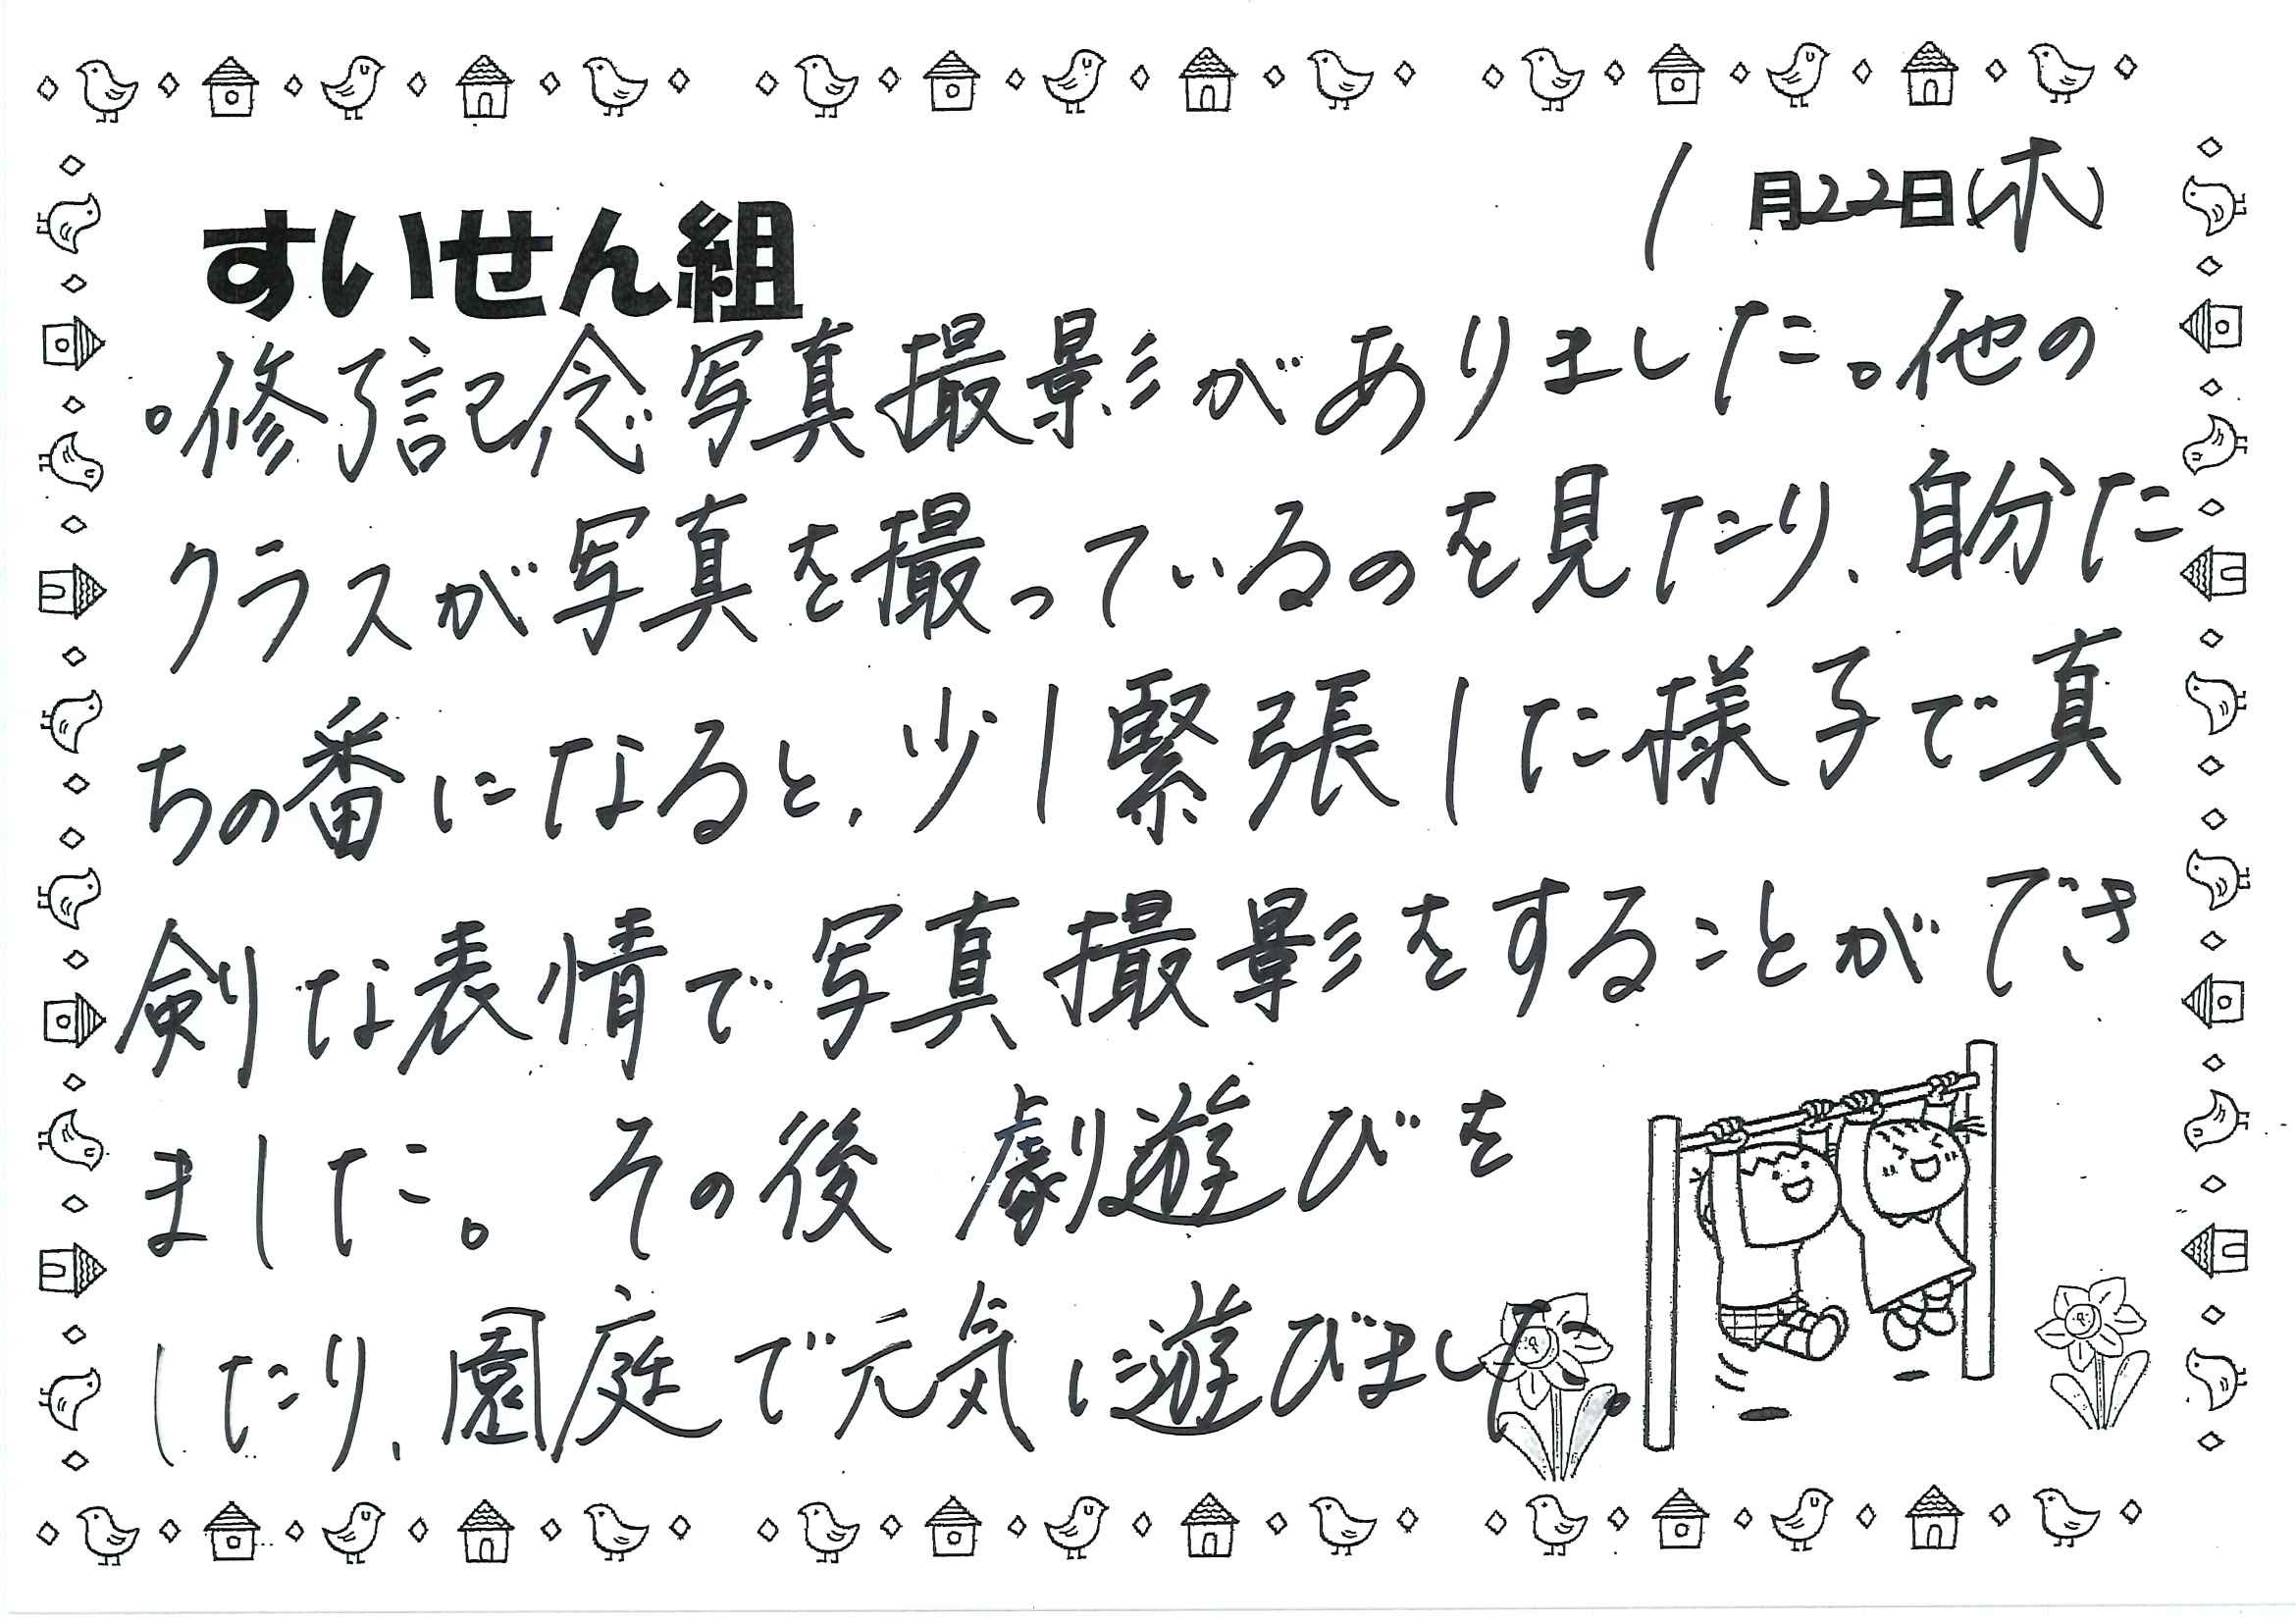 1月22日(木)
すいせん組
。修了記念写真撮影がありました。他の
クラスが写真を撮っているのを見たり、自分た
ちの番になると、少し緊張した様子で真
剣な表情で写真撮影をすることができ
ました。その後 劇遊びを
したり、園庭で元気に遊びました。